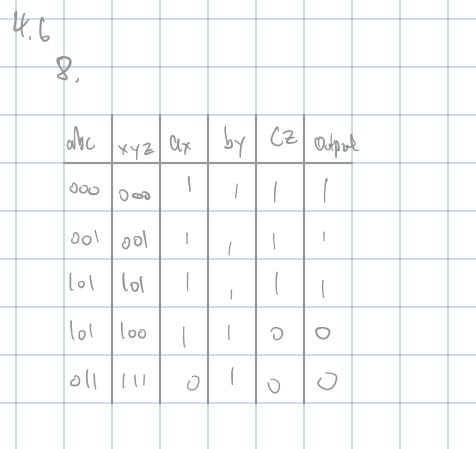 4.6
8.
abc xyz ax by cz output
000 000 1 1 1 1
001 001 1 1 1 1
101 101 1 1 1 1
101 100 1 1 0 0
011 111 0 1 0 0